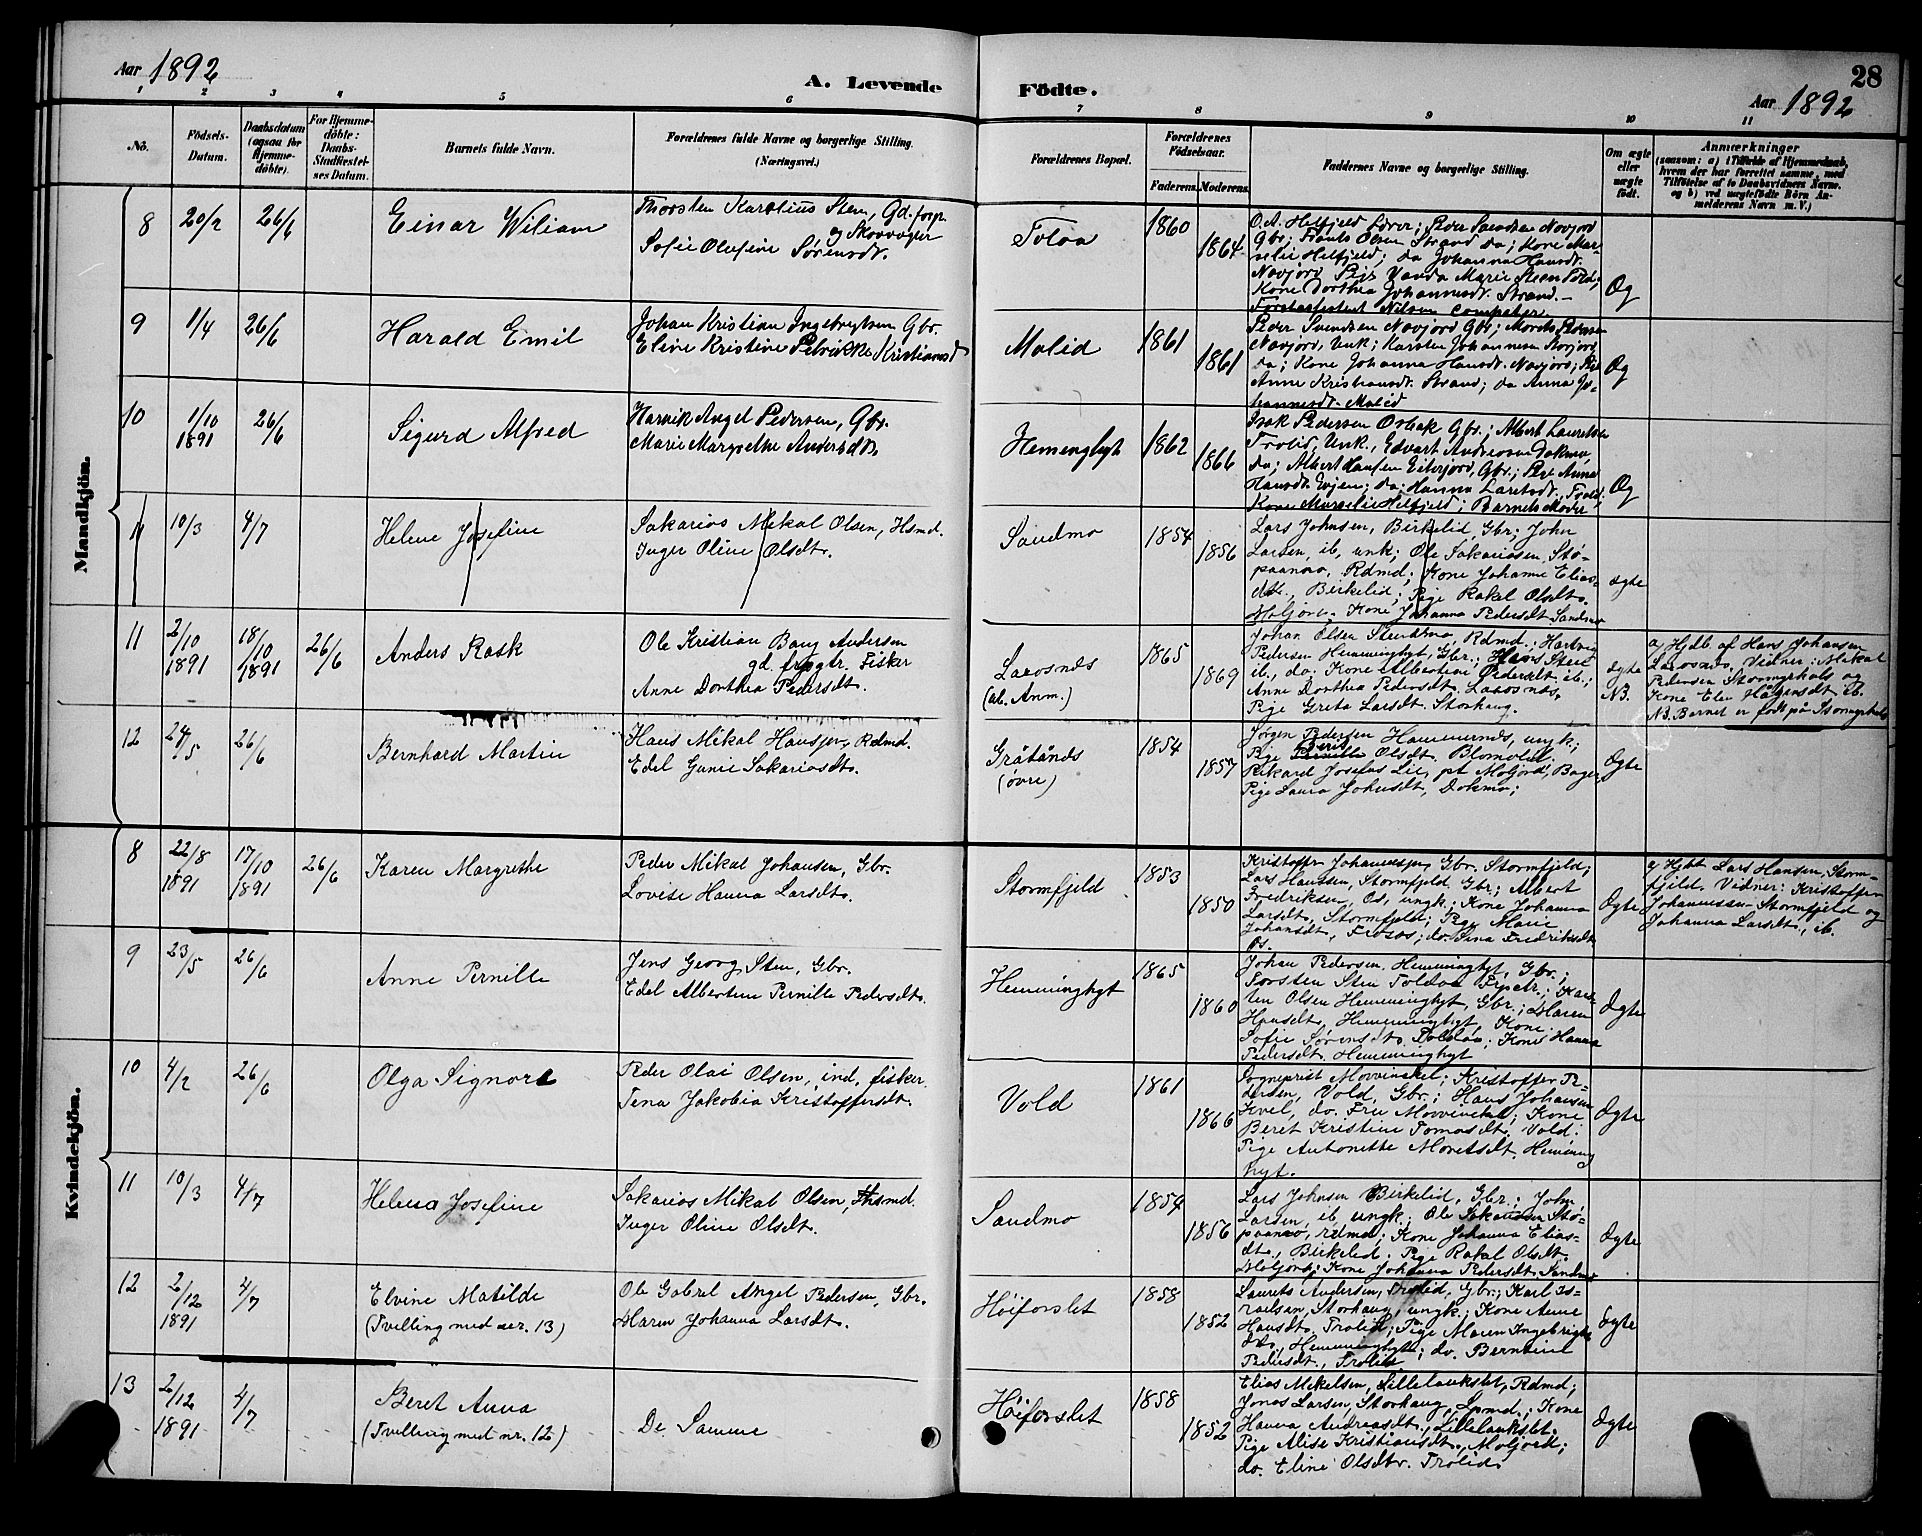 Aar 1892
A. Levende
Födte.
28
Aar 1892
1 2 3 4 5 6 7 8 9 10 11
No.
Födsels-
Datum.
Daabsdatum
(ogsaa for
Hjemme-
döbte).
For Hjemme-
döbte:
Daabs-
Stadfæstel-
ses Datum.
Barnets fulde Navn.
Forældrenes fulde Navne og borgerlige Stilling.
(Næringsvei.)
Forældrenes Bopæl.
Forældrenes
Födselsaar.
Faderens. Moderens.
Faddernes Navne og borgerlige Stilling.
Om ægte
eller
uægte
födt.
Anmærkninger
(saasom: a) i Tilfælde af Hjemmedaab,
hvem der har forrettet samme, med
Tilföielse af to Daabsvidners Navne,
og b) ved uægtefödte Börn An-
melderens Navn m. V.)
Mandkjön.
8 20/2 26/6 Einar Wiliam
Thorsten Karolius Steen, Gd. forp.
og Skovvogter
Sofie Olufine Sörensdt.
Toloa 1860 1864
O.A. Helfjeld Lærer; Peder Svendsen Novjord
Gbr; Frants Olsen Strand do; Kone Mar-
selie Helfjeld; do Johanna Hansdt.
Novjord Pige Vanda Marie Steen
Kone Dorthea Johannesdt. Strand.
Forstassistent Nilsen
Æg
9 1/4 26/6 Harald Emil
Johan Kristian Ingebrigtsen Gbr.
Eline Kristine Petrikke Kristiansdt
Molid 1861 1861
Peder Svendsen Novjord Gbr; Morits Pedersen
Novjord, Unk; Karsten Johannesen Storjord
do; Kone Johanna Hansdt. Novjord; Pige
Anne Kristiansdt. Strand; do Anna Jo-
hannesdt. Molid
Æg
10 1/10 1891 26/6 Sigurd Alfred
Harvik Angel Pedersen, Gbr.
Marie Margrethe Andersdt.
Hemenghyt 1862 1866
Isak Pedersen Osbak Gbr.; Albert Lauritsen
Trolid, Unk., Edvart Andreasen Dokmo,
do; Albert Hansen Eiterjord, Gbr.; Pige Anna
Hansdt. Evjen; do: Hanna Larsdt. Trolid;
Kone Marselie Helfjeld; Barnets Moder
Æg
11 10/3 4/7 Helene Josefine
Sakarias Mikal Olsen, Hsmd.
Inger Oline Olsdt.
Sandmo 1854 1856
Lars Johnsen, Birkelid, Gbr; John
Larsen, ib, unk; Ole Sakariasen Stø-
paanoso, Rdmd; Kone Johanna Elias-
dt., Birkelid; Pige Rakel Olsdt.
Moljord; Kone Johanna Pedersdt. Sandmo
ægte
11 2/10 1891 18/10 1891 26/6 Anders Rask
Ole Kristian Bang Andersen
gd. frpgtr. Fisker
Anne Dorthea Pedersdt.
Laxosnes
(ab. Anm.)
1865 1869
Johan Olsen Stenmo, Rdmd; Hartvig
Pedersen Hemminghyt, Gbr.; Hans Steen
ib., do: Kone Albertine Pedersdt ib;
Anne Dorthea Pedersdt. Laxosnes,
Pige Greta Larsdt. Storhaug.
ægte
NB.
a) Hjdb. af Hans Johansen
Laxosnes, Vidner: Mikal
Pedersen Stormyrhals og
Kone Elen Hågensdt. ib.
NB. Barnet er født på Stormyrhals
12 24/5 26/6 Bernhard Martin
Hans Mikal Hansen, Rdmd.
Edel Gunie Sakariasdt.
Gråtånes
(øvre)
1854 1857
Jørgen Pedersen Hammernes, ungk;
Pige Berit Olsdt. Blomolid.
Rikard Josefus Lie, pt Moljord, Bager
Pige Laura Johnsdt, Dokmo;
Ægte
Kvindekjön.
8 22/8 1891 17/10 1891 26/6 Karen Margrethe
Peder Mikal Johansen, Gbr.
Lovise Hanna Larsdt.
Stormfjeld 1853 1850
Kristoffer Johannesen, Gbr. Stormfjeld;
Lars Hanssen, Stormfjeld Gbr.; Albert
Fredriksen, Os, ungk; Kone Johanna
Larsdt., Stormfjeld; Pige Marie
Johansdt, Frosos; do. Lina Fredriksdt
Os.
Ægte
a) Hjbt Lars Hansen, Storm-
fjeld. Vidner: Kristoffer
Johannessen Stormfjeld og
Johanna Larsdt., ib.
9 23/5 26/6 Anne Pernille
Jens Georg Sten, Gbr.
Edel Albertine Pernille Pedersdt.
Hemminghyt 1865 1860
Johan Pedersen, Hemminghyt, Gbr.;
Torsten Sten Toldåa Fpgtr.; Kars-
ten Olsen Hemminghyt, Gbr.; Maren
Hansdt., Hemminghyt, Kone
Sofie Sørensdt. Toldåa; Kone Hanna
Pedersdt. Hemminghyt
Ægte
10 4/2 26/6 Olga Signora
Peder Olai Olsen, ind. fisker
Tina Jakobia Kristoffersdt.
Vold 1861 1866
Sogneprist Movinckel; Kristoffer Pe-
dersen, Vold, Gbr.; Hans Johansen
Kvel, do. Fru Movinckel; Kone
Beret Kristine Tomasdt. Vold.
Pige Antonette Moritsdt. Heming
hyt.
Ægte
11 10/3 4/7 Helena Josefine
Sakarias Mikal Olsen, Husmd.
Inger Oline Olsdt.
Sandmo 1854 1856
Lars Johnsen Birkelid, Gbr.; John
Larsen, ib, ungk; Ole Sakariasen Stø-
paanso, rdmd; Kone Johanna Elias-
dt., Birkelid. Pige Rakel Olsdt.
Moljord; Kone Johanna Pedersdt. Sandmo
Ægte
12 2/12 1891 4/7 Elvine Matilde
(Tvilling med nr. 13)
Ole Gabrel Angel Pedersen, Gbr.
Maren Johanna Larsdt.
Høiforslet 1858 1852
Laurits Andersen, Trolid, Gbr.; Karl Is-
raelsen, Storhaug, ungk; Kone Anne
Hansdt. Trolid; Pige Maren Ingebrigts
dt., Hemminghyt; do. Berntine
Pedersdt., Trolid.
Ægte
13 2/12 1891 4/7 Beret Anna
(Tvilling med nr. 12)
De Samme
Høiforslet 1858 1852
Elias Mikelsen, Lillelaukslet, Rdmd;
Jonas Larsen, Storhaug, Spmd.; Kone
Hanna Andreasdt., Lillelaukslet.
Pige Alise Kristiansdt., Moljord;
do. Eline Olsdtr. Trolid.
Ægte